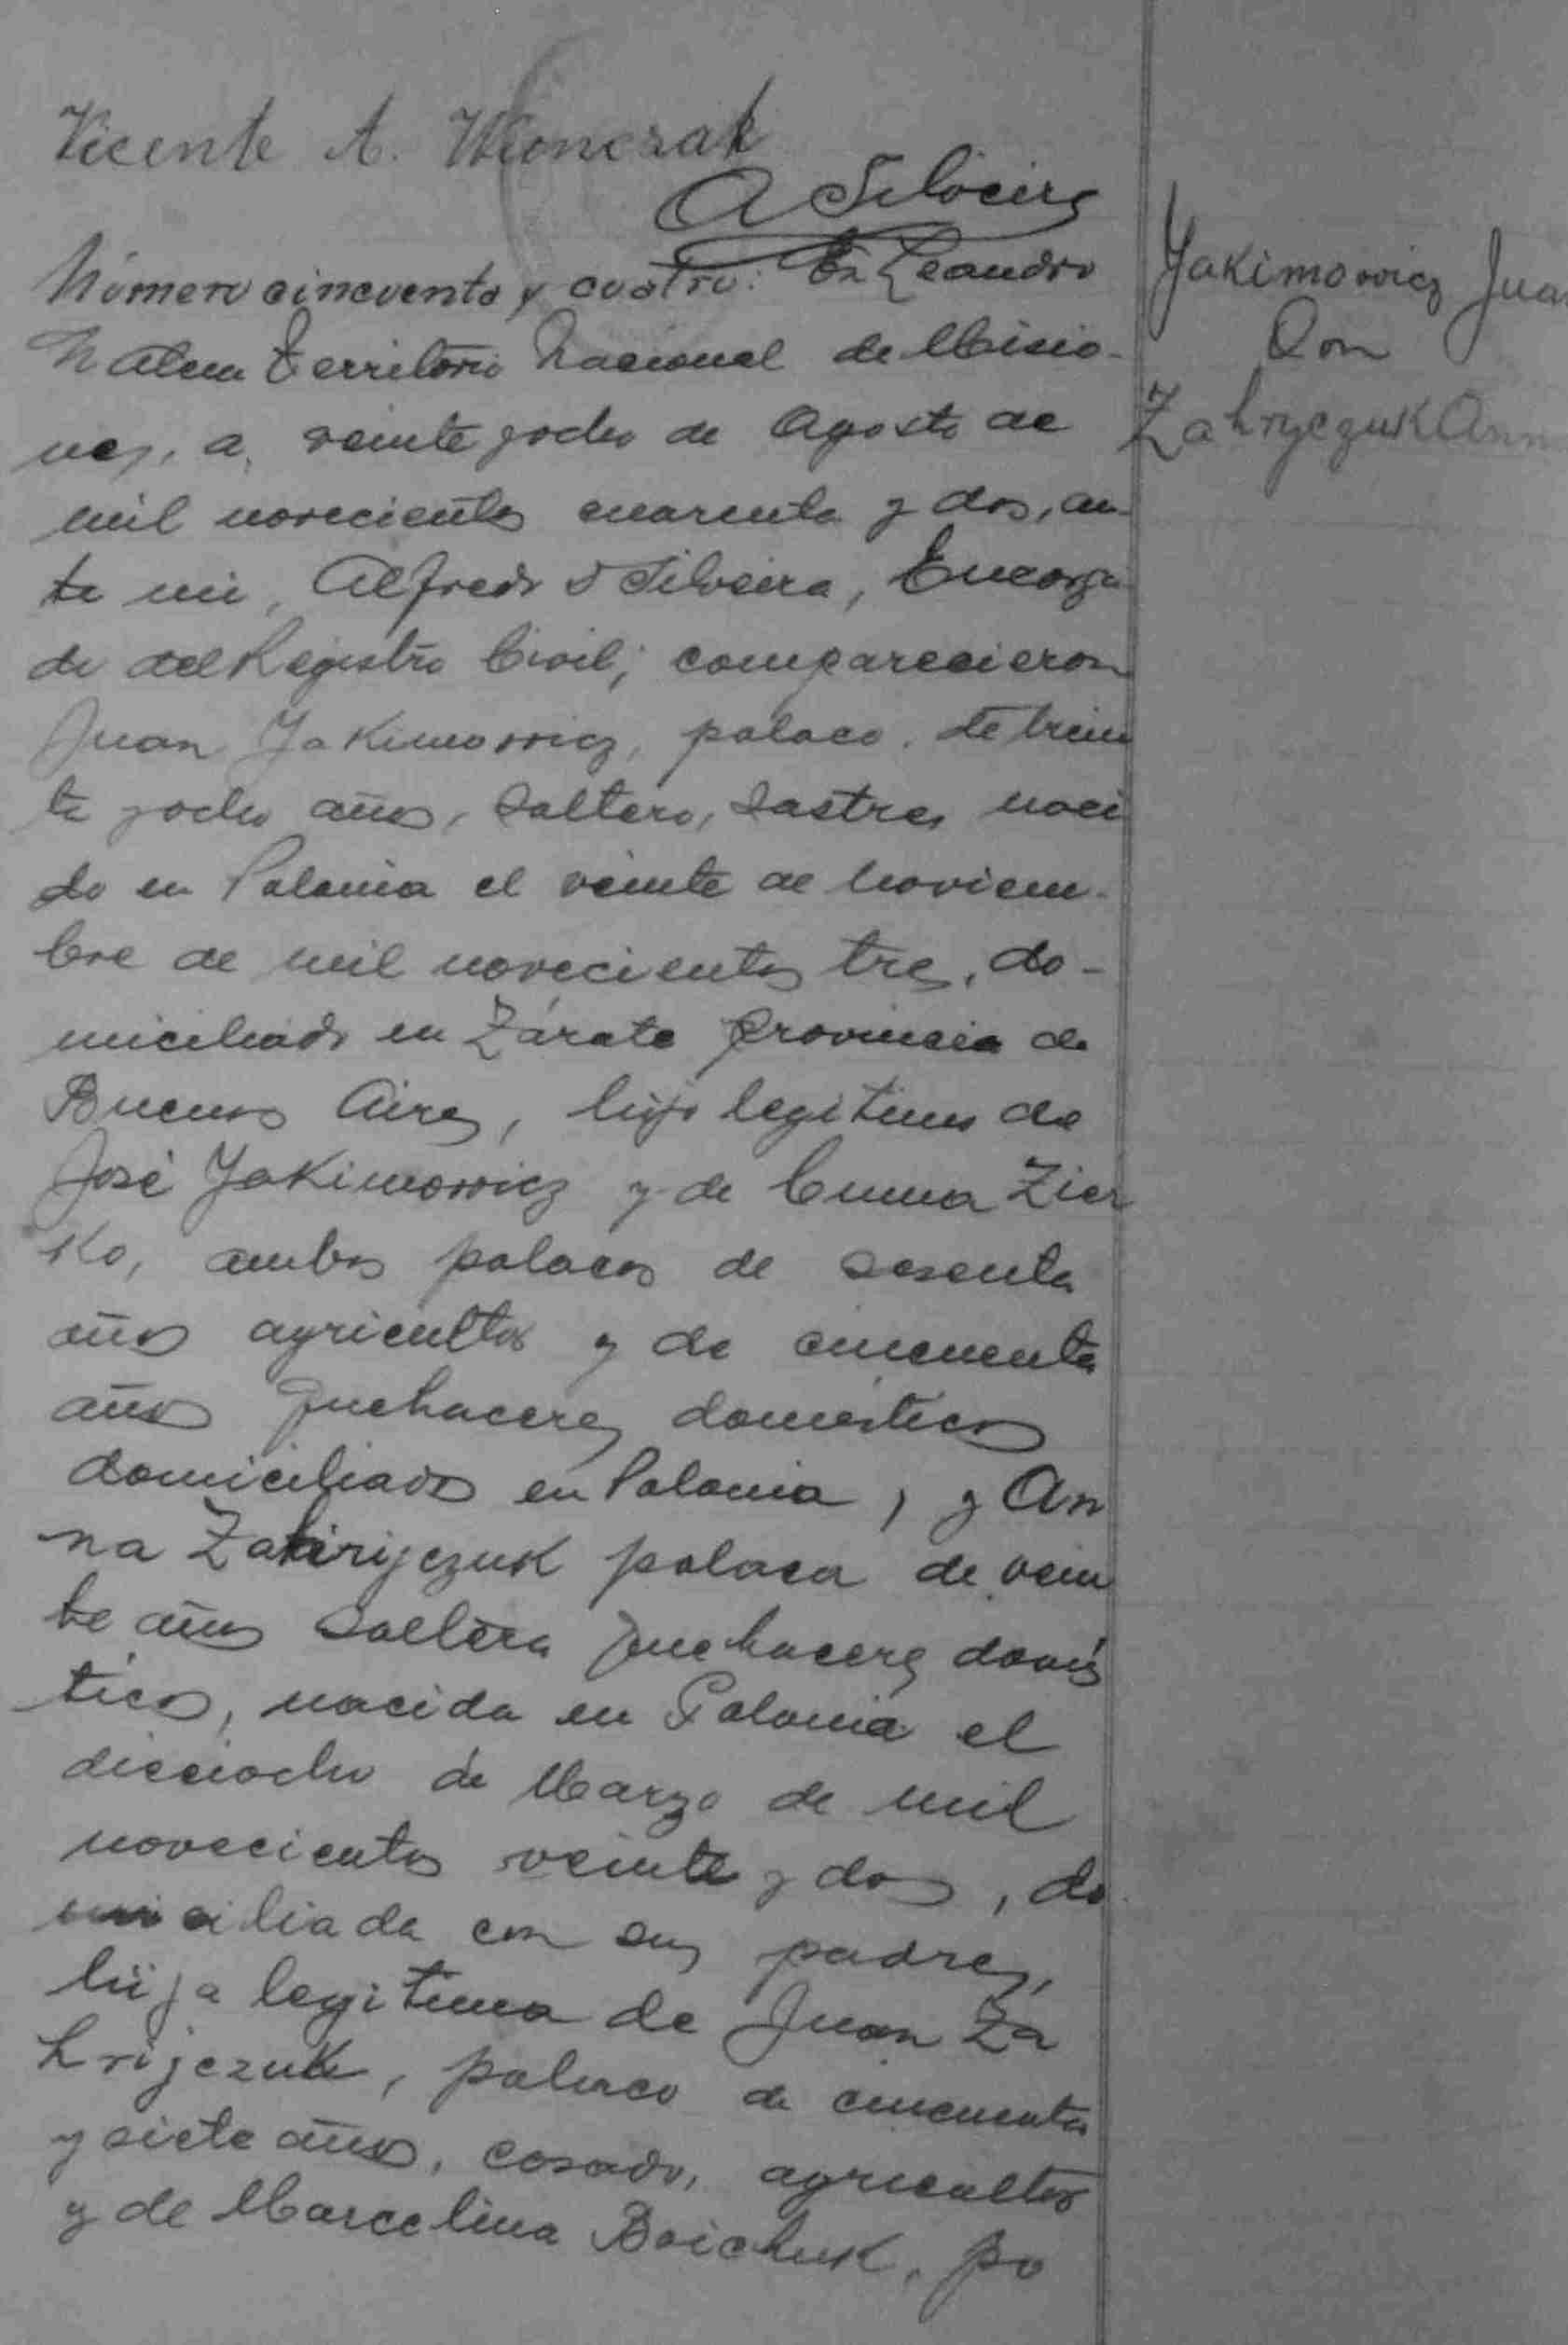 Vicente A. Wionczak
A Silveira
Yakimowicz Juan
Con
Zahryczuk Anna
Número cincuenta y cuatro: En Leandro
N Alem Territorio Nacional de Misio-
nes, a, veinte y ocho de Agosto de
mil novecientos cuarenta y dos, an-
te mi, Alfredo S Silveira, Encarga
do del Registro Civil; comparecieron
Juan Yakimowicz, polaco, de trein
ta y ocho años, Soltero, Sastre, naci
do en Polonia el veinte de Noviem-
bre de mil novecientos tres, do-
miciliado en Zárate Provincia de
Buenos Aires, hijo legitimo de
José Yakimowicz y de Emma Zier
Ko, ambos polacos de sesenta
años agricultor y de cincuenta
años quehaceres domésticos
domiciliados en Polonia, y An
na Zahirijczuk polaca de vein
te años Soltera quehaceres domés
ticos, nacida en Polonia el
dieciocho de Marzo de mil
novecientos veinte y dos, do
miciliada con sus padres,
hija legitima de Juan Za
hrijczuk, polaco de cincuenta
y siete años, casado, agricultor
y de Marcelina Boichuk, po